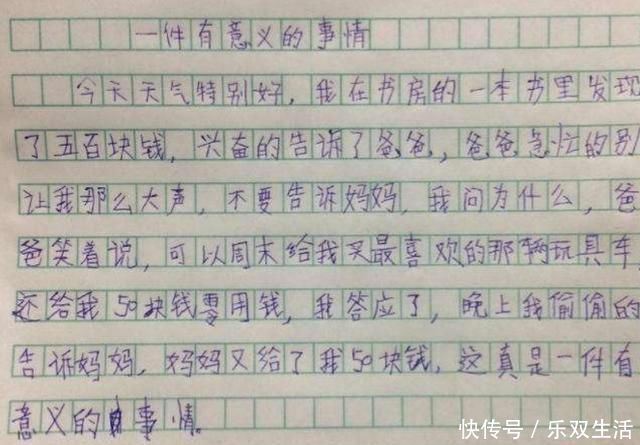 一件有意义的事情
今天天气特别好，我在书房的一本书里发现
了五百块钱，兴奋的告诉了爸爸，爸爸急忙的别
让我那么大声，不要告诉妈妈，我问为什么，爸
爸笑着说，可以周末给我买最喜欢的那辆玩具车，
还给我50块钱零用钱，我答应了，晚上我偷偷的
告诉妈妈，妈妈又给了我50块钱，这真是一件有
意义的事情。
快传号/乐双生活